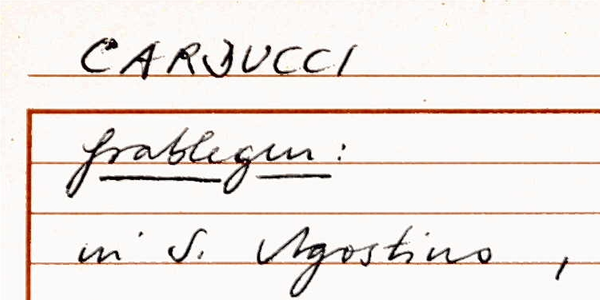 CARDUCCI
Grablegen:
in S. Agostino ,